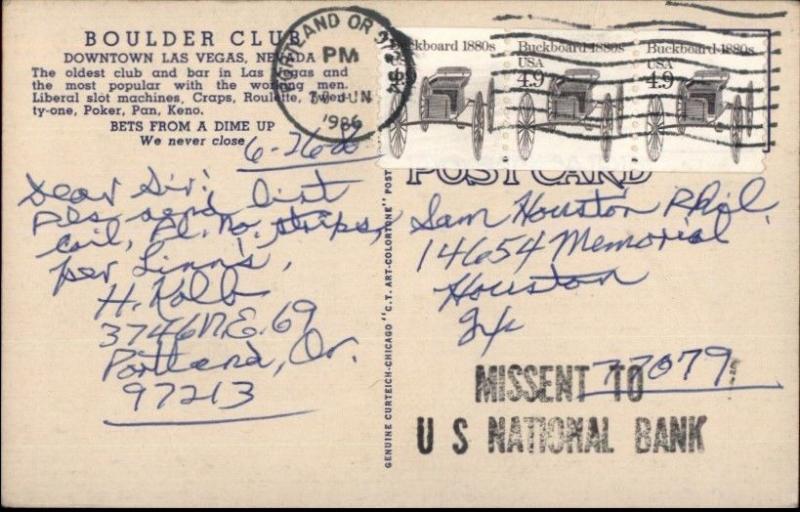 BOULDER CLUB
DOWNTOWN LAS VEGAS, NEVADA
The oldest club and bar in Las Vegas and
the most popular with the working men.
Liberal slot machines, Craps, Roulette, Twen-
ty-one, Poker, Pan, Keno.
BETS FROM A DIME UP
We never close
6-26-86
Dear Sir:
Pls send list
coil, Pl. No. strips,
per Linn's,
H. Kolb
3746 N.E. 69
Portland, Or.
97213
GENUINE CURTEICH-CHICAGO "C.T. ART-COLORTONE" POST
PORTLAND OR
PM
JUN
1986
Buckboard 1880s
Buckboard 1880s
USA
4.9
Buckboard 1880s
USA
4.9
POST CARD
Sam Houston Phil.
14654 Memorial
Houston
Tx
77079
MISSENT TO
U S NATIONAL BANK